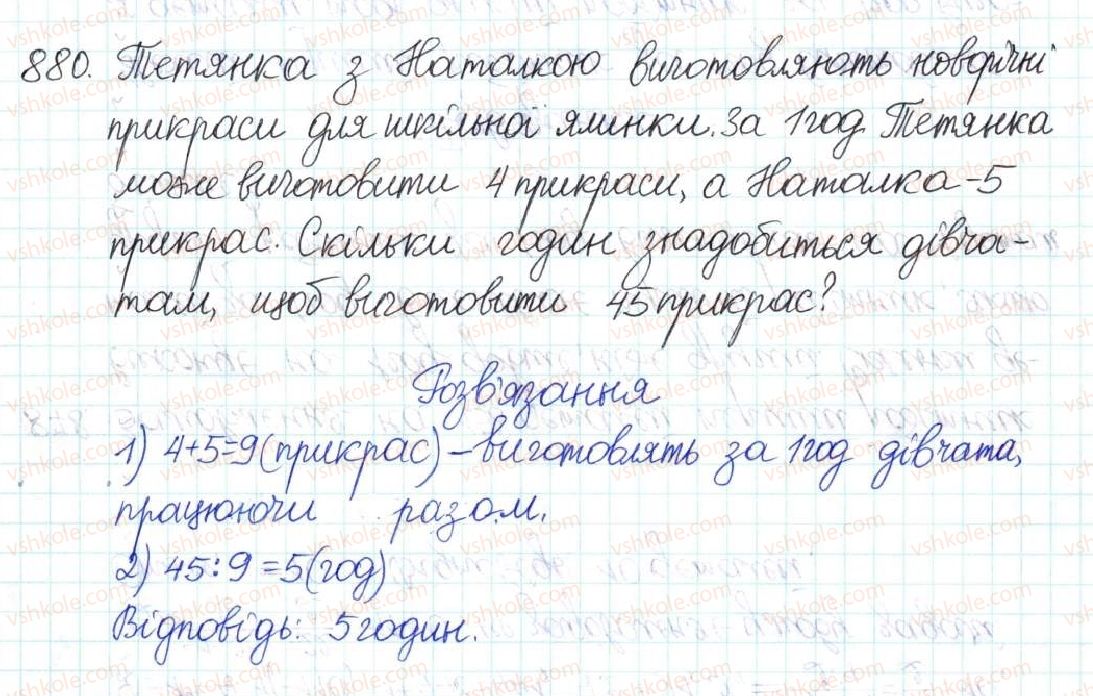 880. Тетянка з Наталкою виготовляють новорічні
прикраси для шкільної ялинки. За 1 год Тетянка
може виготовити 4 прикраси, а Наталка - 5
прикрас. Скільки годин знадобиться дівча-
там, щоб виготовити 45 прикрас?
Розв'язання
1) 4+5=9 (прикрас) – виготовлять за 1 год дівчата,
працюючи разом.
2) 45:9=5 (год)
Відповідь: 5 годин.